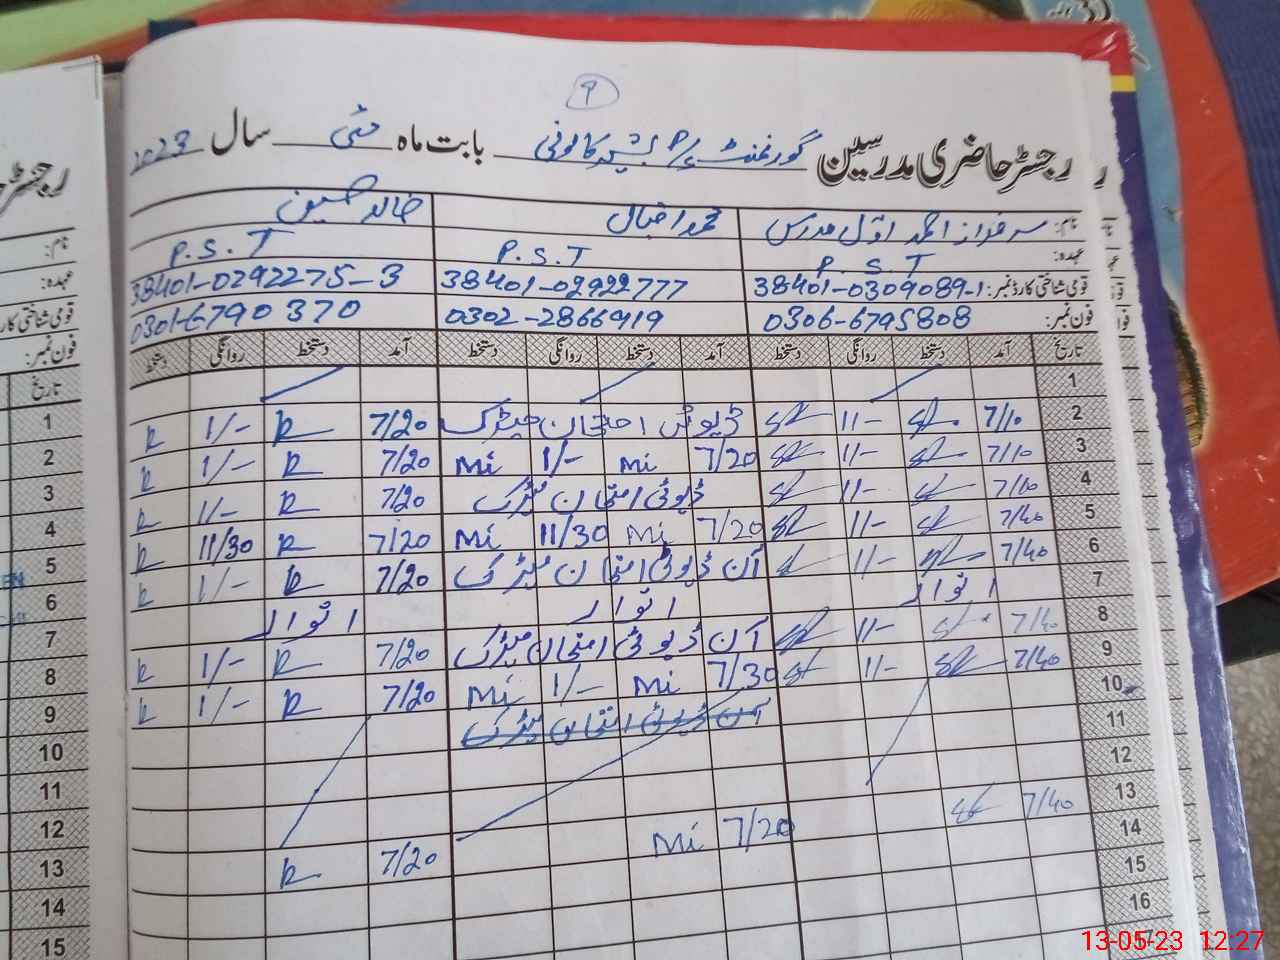 ۹
رجسٹر حاضری مدرسین گورنمنٹ P/S بشیر کالونی بابت ماہ مئی سال 2023
نام: سرفراز احمد اوّل مدرس محمد اقبال خالد حسین
عہدہ: P.S.T P.S.T P.S.T
قومی شناختی کارڈ نمبر: 38401-0309089-1 38401-02922777 38401-0292275-3
فون نمبر: 0306-6795808 0302-2866919 0301-6790370
تاریخ آمد دستخط روانگی دستخط آمد دستخط روانگی دستخط آمد دستخط روانگی دستخط
1
2 7/10 11/- ڈیوٹی امتحان میٹرک 7/20 R 1/- R
3 7/10 11/- 7/20 Mi 1/- Mi 7/20 R 1/- R
4 7/10 11/- ڈیوٹی امتحان میٹرک 7/20 R 1/- R
5 7/40 11/- 7/20 Mi 11/30 Mi 7/20 R 11/30 R
6 7/40 11/- آن ڈیوٹی امتحان میٹرک 7/20 R 1/- R
7 اتوار اتوار اتوار
8 7/40 11/- آن ڈیوٹی امتحان میٹرک 7/20 R 1/- R
9 7/40 11/- 7/30 Mi 1/- Mi 7/20 R 1/- R
10 آن ڈیوٹی امتحان میٹرک
11
12
13 7/40 7/20 Mi 7/20 R
14
15
16
رجسٹر
نام:
عہدہ:
قومی شناختی کارڈ
فون نمبر:
تاریخ
1
2
3
4
5
6
7
8
9
10
11
12
13
14
15
13-05-23 12:27